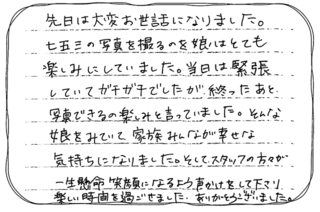 先日は大変お世話になりました。
七五三の写真を撮るのを娘はとても
楽しみにしていました。当日は緊張
していてガチガチでしたが、終ったあと
写真できるの楽しみと言っていました。そんな
娘をみていて家族みんなが幸せな
気持ちになりました。そしてスタッフの方々が
一生懸命笑顔になるよう声かけをして下さり
楽しい時間を過ごせました。ありがとうございました。